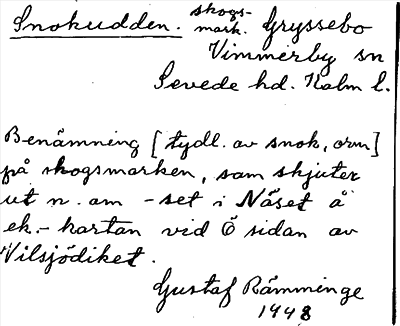 Snokudden. skogsmark. Gryssebo
Vimmerby sn
Sevede hd. Kalm l.
Benämning [tydl. av snok, orm]
på skogsmarken, som skjuter
ut n. om -set i Näset å
ek.-kartan vid Ö sidan av
Vilsjödiket.
Gustaf Rämminge
1948